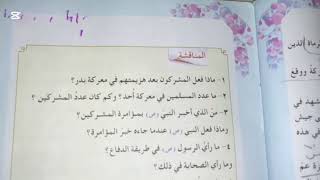 المناقشة
١- ماذا فعل المشركون بعد هزيمتهم في معركة بدر؟
٢- ما عدد المسلمين في معركة أحد؟ وكم كان عددُ المشركين؟
٣- مَنْ الذي أخبر النبي (ص) بمؤامرة المشركين؟
وماذا فعل النبي (ص) عندما جاءه خبر المؤامرة؟
٤- ما رأيُ الرسول (ص) في طريقة الدفاع؟
وما رأي الصحابة في ذلك؟
الذين
ووقع
في
جيش
هذه